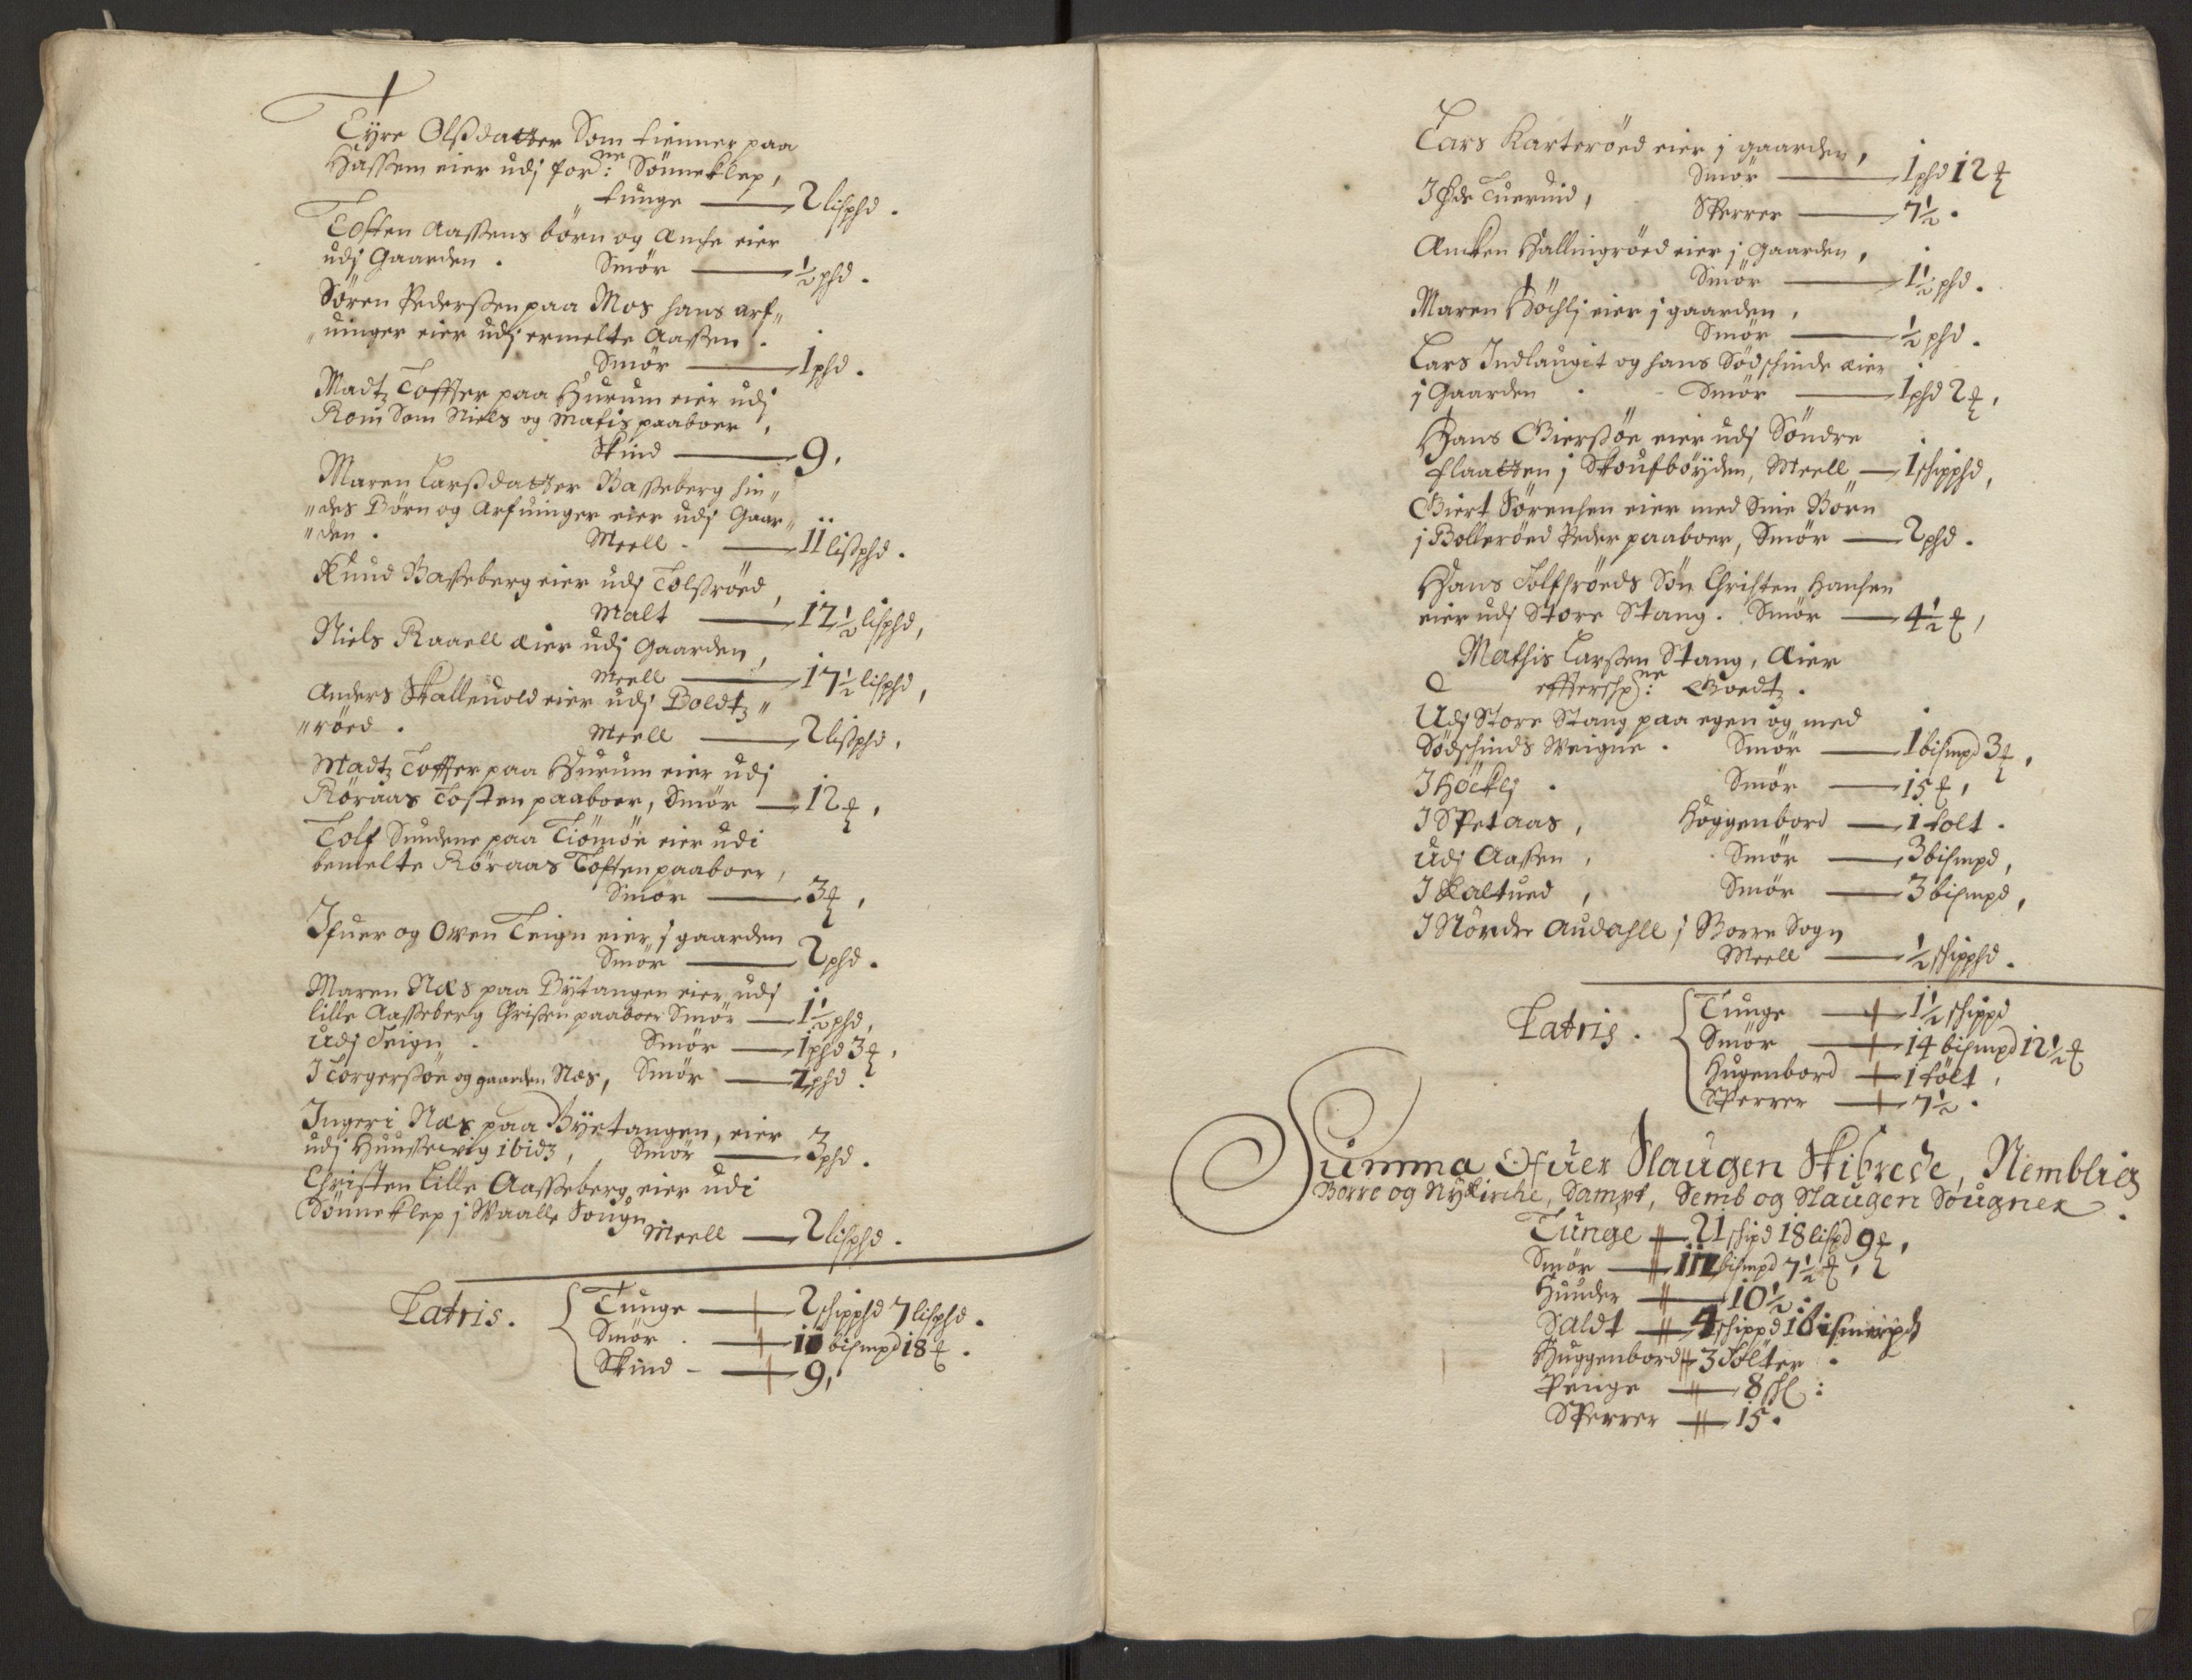 Tyre Olßdatter Som tienner paa
Haßem eier udj forne: Sönneklep,
tunge — 2 lisphd.
Tosten Aaßens börn og Ancke eier
udj Gaarden. Smör — ½ phd.
Sören Pederßen paa Mos hans arf„
„uinger eier udj ermelte Aaßen.
Smör — 1 phd.
Madtz Toffter paa Hurum eier udj
Rom Som Niels og Matis paaboer,
Skind — 9.
Maren Larßdatter Baßeberg hin„
„des Börn og Arfuinger eier udj Gaar„
„den. Meell — 11 lißphd.
Knud Baßeberg eier udj Tolßröed,
Malt — 12½ lisphd,
Niels Raaell æier udj Gaarden,
Meell — 17½ lisphd,
Anders Skalleuold eier udj Boldtz„
„röed. Meell — 2 lißphd.
Madtz Toffter paa Hurum eier udj
Röraas Tosten paaboer, Smör — 12 ℔,
Tolf Sundene paa Tiömöe eier udi
bemelte Röraas Tosten paaboer,
Smör — 3 ℔,
Ifuer og Owen Teign eier j gaarden
Smör — 2 phd.
Maren Næs paa Bytangen eier udj
lille Aaßeberg Christen paaboer Smör — 1½ phd,
Udj Teign. Smör — 1 phd 3 ℔,
I Torgersöe og gaarden Næs, Smör — 2 phd.
Ingeri Næs paa Byetangen, eier
udj Hunßewig ibidz, Smör — 3 phd.
Christen Lille Aaßeberg eier udi
Sönneklep j Waalle Sougn
Meell — 2 lisphd.
Latris. Tunge — 2 schipphd 7 lisphd.
Smör — 11 bismpd 18 ℔.
Skind — 9,
Lars Karteröed eier j gaarden,
Smör — 1 phd 12 ℔
I Tueruid, Sperrer — 7½.
Ancken Hallingröed eier j Gaarden,
Smör — 1½ phd.
Maren Höchlj eier j gaarden,
Smör — ½ phd.
Lars Indlaugit og hans Södschinde æier
j Gaarden. Smör — 1 phd 2 ℔,
Hans Gierßöe eier udj Söndre
flaatten j Skoufböyden, Meell — 1 schipphd,
Giert Sörensen eier med Sine Börn
j Bolleröed Peder paaboer, Smör — 2 phd.
Hans Tolfsröeds Sön Christen Hansen
eier udj Store Stang. Smör — 4½ ℔,
Mathis Larßen Stang, Æier
effterschne: Goedtz.
Udj Store Stang paa egen og med
Södschinds Weigne. Smör — 1 bismpd 3 ℔,
I Höcklj. Smör — 15 ℔,
I Spetaas, Höggenbord — 1 tolt.
Udj Aaßen, Smör — 3 bismpd,
I Kaltued, Smör — 3 bismpd,
I Nördre Audahll j Borre Sogn
Meell — ½ schipphd.
Latris. Tunge — 1½ schippd
Smör — 14 bismpd 12½ ℔
Hugenbord — 1 tölt,
Sperrer — 7½.
Summa Ofuer Slaugen Skibrede, Nemblig
Borre og Nykirche, Sampt, Semb og Slaugen Sougner.
Tunge — 21 schipd 18 lispd 9 ℔,
Smör — bismpd 7½ ℔,
Huuder — 10½.
Saldt — 4 schippd 1 bismerpd
Huggenbord — 3 Tölter.
Penge — 8 sh:
Sperrer — 15.